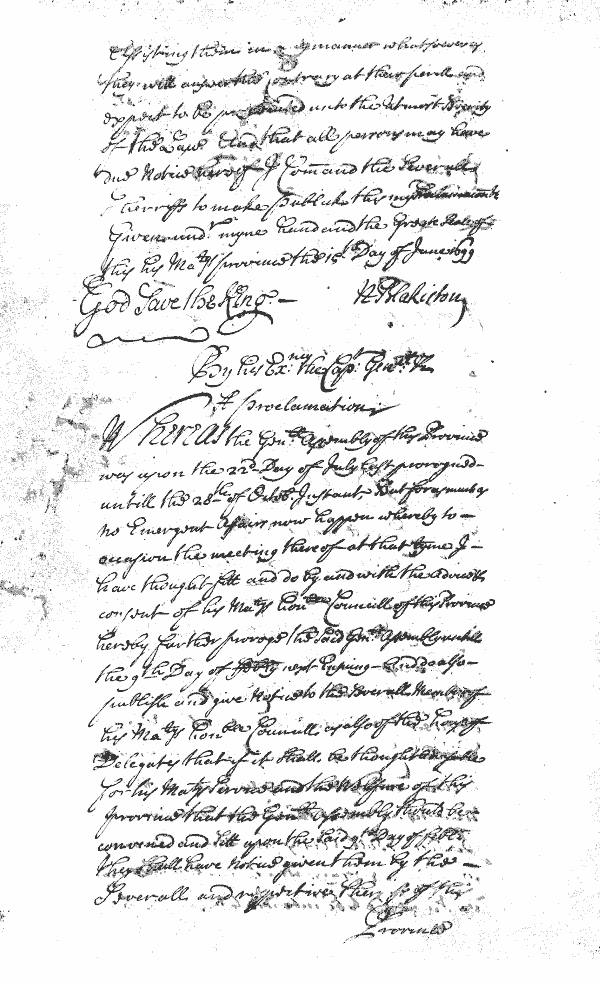 assisting them in any manner whatsoever as
they will answer the contrary at their perills and
expect to be prosecuted unto the utmost Severity
of the Laws And that all persons may have
due Notice hereof I Command the Severall
Sherriffs to make publick this my
Given undr myne hand and the Greate Seale of
this his Matys province the 15th Day of June 1699
God Save the King — N Blakiston
By his Exncy the Capt Genll &c
A proclamation
Whereas the Genll Assembly of this Province
was upon the 22d Day of July last prorogued
untill the 28th of Octobr Instant But forasmuch as
no Emergent Affairs now happen whereby to
occasion the meeting thereof at that tyme I
have thought fitt and do by and with the advice &
consent of his Matys honble Councill of this Province
hereby further proroge the said Genll Assembly untill
the 9th Day of febry next Ensuing And do also
publish and give Notice to the Severall Members of
his Matys honble Councill as also of the house of
Delegates that if it Shall be thought
for his Matys Service and the Welfare of this
province that the Genll Assembly should be
convened and sitt upon the said 9th Day of febry
they Shall have Notice given them by the
Severall and respective Sherrs of this
Province